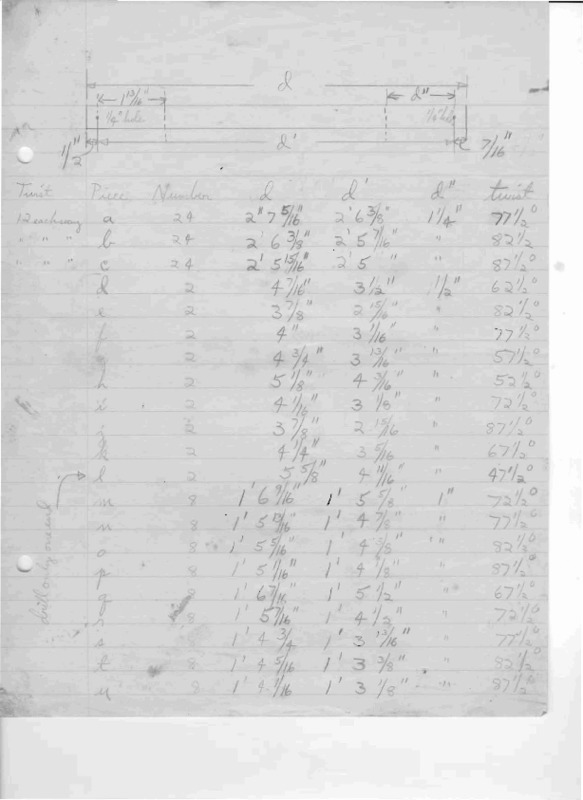 d
1 13/16" d"
1/4" hole 1/4" hole
1/2" d' 7/16"
Twist Piece Number d d' d" twist
12 each way a 24 2" 7 5/16" 2' 6 3/8" 1 1/4" 77 1/2°
" " " b 24 2' 6 3/8" 2' 5 7/16" " 82 1/2°
" " " c 24 2' 5 15/16" 2' 5 " " 87 1/2°
d 2 4 7/16" 3 1/2" 1/2" 62 1/2°
e 2 3 7/8" 2 15/16 " 82 1/2°
f 2 4" 3 1/16" " 77 1/2°
g 2 4 3/4" 3 13/16 " 57 1/2°
h 2 5 1/8" 4 3/16" " 52 1/2°
i 2 4 1/16" 3 1/8" " 72 1/2°
j 2 3 7/8" 2 15/16 " 87 1/2°
k 2 4 1/4" 3 5/16 " 67 1/2°
l 2 5 5/8" 4 11/16" " 47 1/2°
m 8 1' 6 9/16" 1' 5 5/8" 1" 72 1/2°
n 8 1' 5 13/16" 1' 4 7/8" " 77 1/2°
o 8 1' 5 5/16" 1' 4 3/8" " 82 1/2°
p 8 1' 5 1/16" 1' 4 1/8" " 87 1/2°
q 8 1' 6 7/16" 1' 5 1/2" " 67 1/2°
r 8 1' 5 7/16" 1' 4 1/2" " 72 1/2°
s 8 1' 4 3/4 1' 3 13/16" " 77 1/2°
t 8 1' 4 5/16 1' 3 3/8" " 82 1/2°
u 8 1' 4 1/16 1' 3 1/8" " 87 1/2°
drill only one end